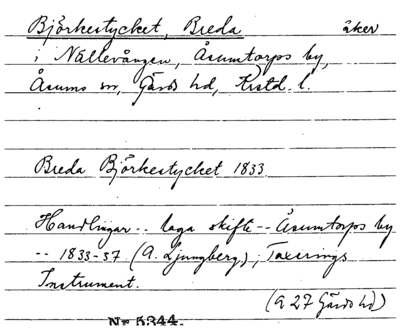 Björkestycket, Breda åker
i Nällevången, Åsumtorps by,
Åsums sn, Gärds hd, Krstd. l.
Breda Björkestycket 1833
Handlingar -- laga skifte -- Åsumtorps by
-- 1833-37 (A. Ljungberg); Taxerings
Instrument.
(a 27 Gärds hd)
Nr 5344.